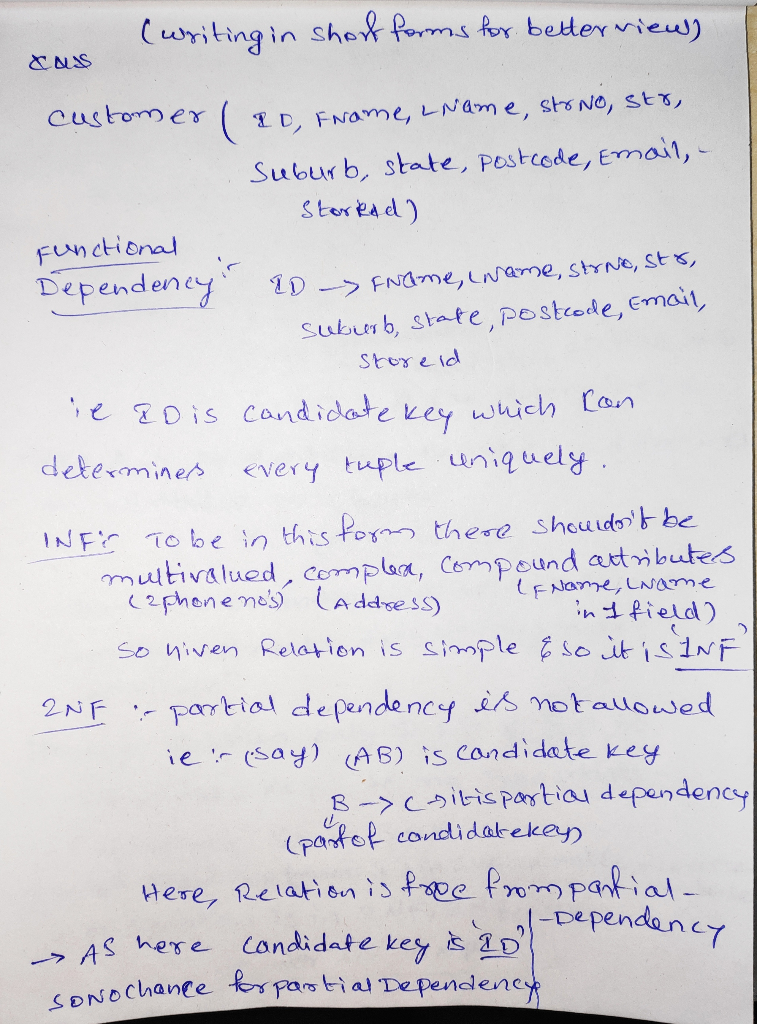 (writing in short forms for better view)
ans
Customer ( ID, FName, LName, strNo, str,
Suburb, state, postcode, Email,
Storeid)
Functional
Dependency :- ID → FName, LName, strNo, str,
Suburb, state, postcode, Email,
storeid
ie ID is candidate key which can
determines every tuple uniquely.
1NF :- To be in this form there shouldn't be
multivalued, complex, compound attributes
(2 phone no's) (Address) (FName, LName
in 1 field)
So given Relation is simple & so it is '1NF'
2NF :- partial dependency is not allowed
ie :- (say) (AB) is candidate key
B → C → it is partial dependency
(part of candidate key)
Here, Relation is free from partial -
- Dependency
→ As here candidate key is 'ID'
so no chance for partial Dependency